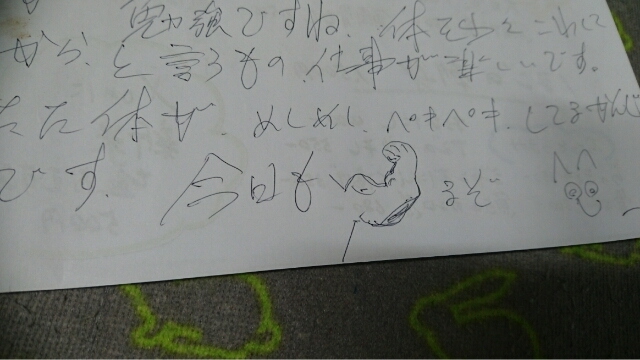 勉強ですね。体をみてこれに
から、と言うもの、仕事が楽しいです。
ただ体が、めしめし、ペキペキ、してるかんじ
です。今日も まぞ